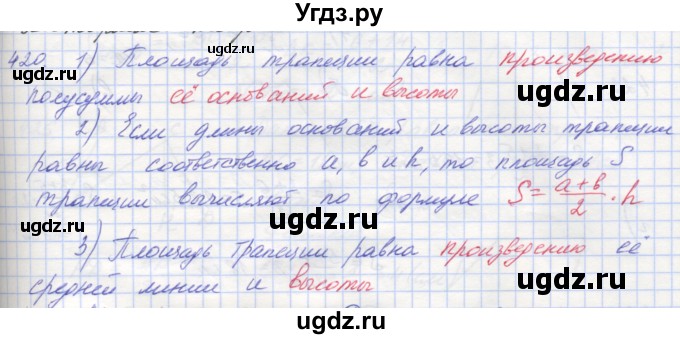 Угдз.ру
420 1) Площадь трапеции равна произведению
полусуммы её оснований и высоты
ugdz.ru ugdz.ru
2) Если длины оснований и высоты трапеции
равны соответственно a, b и h, то площадь S
ugdz.ru ugdz.ru
трапеции вычисляют по формуле S = a+b/2 · h
ugdz.ru ugdz.ru
3) Площадь трапеции равна произведению её
средней линии и высоты
ugdz.ru ugdz.ru
ugdz.ru